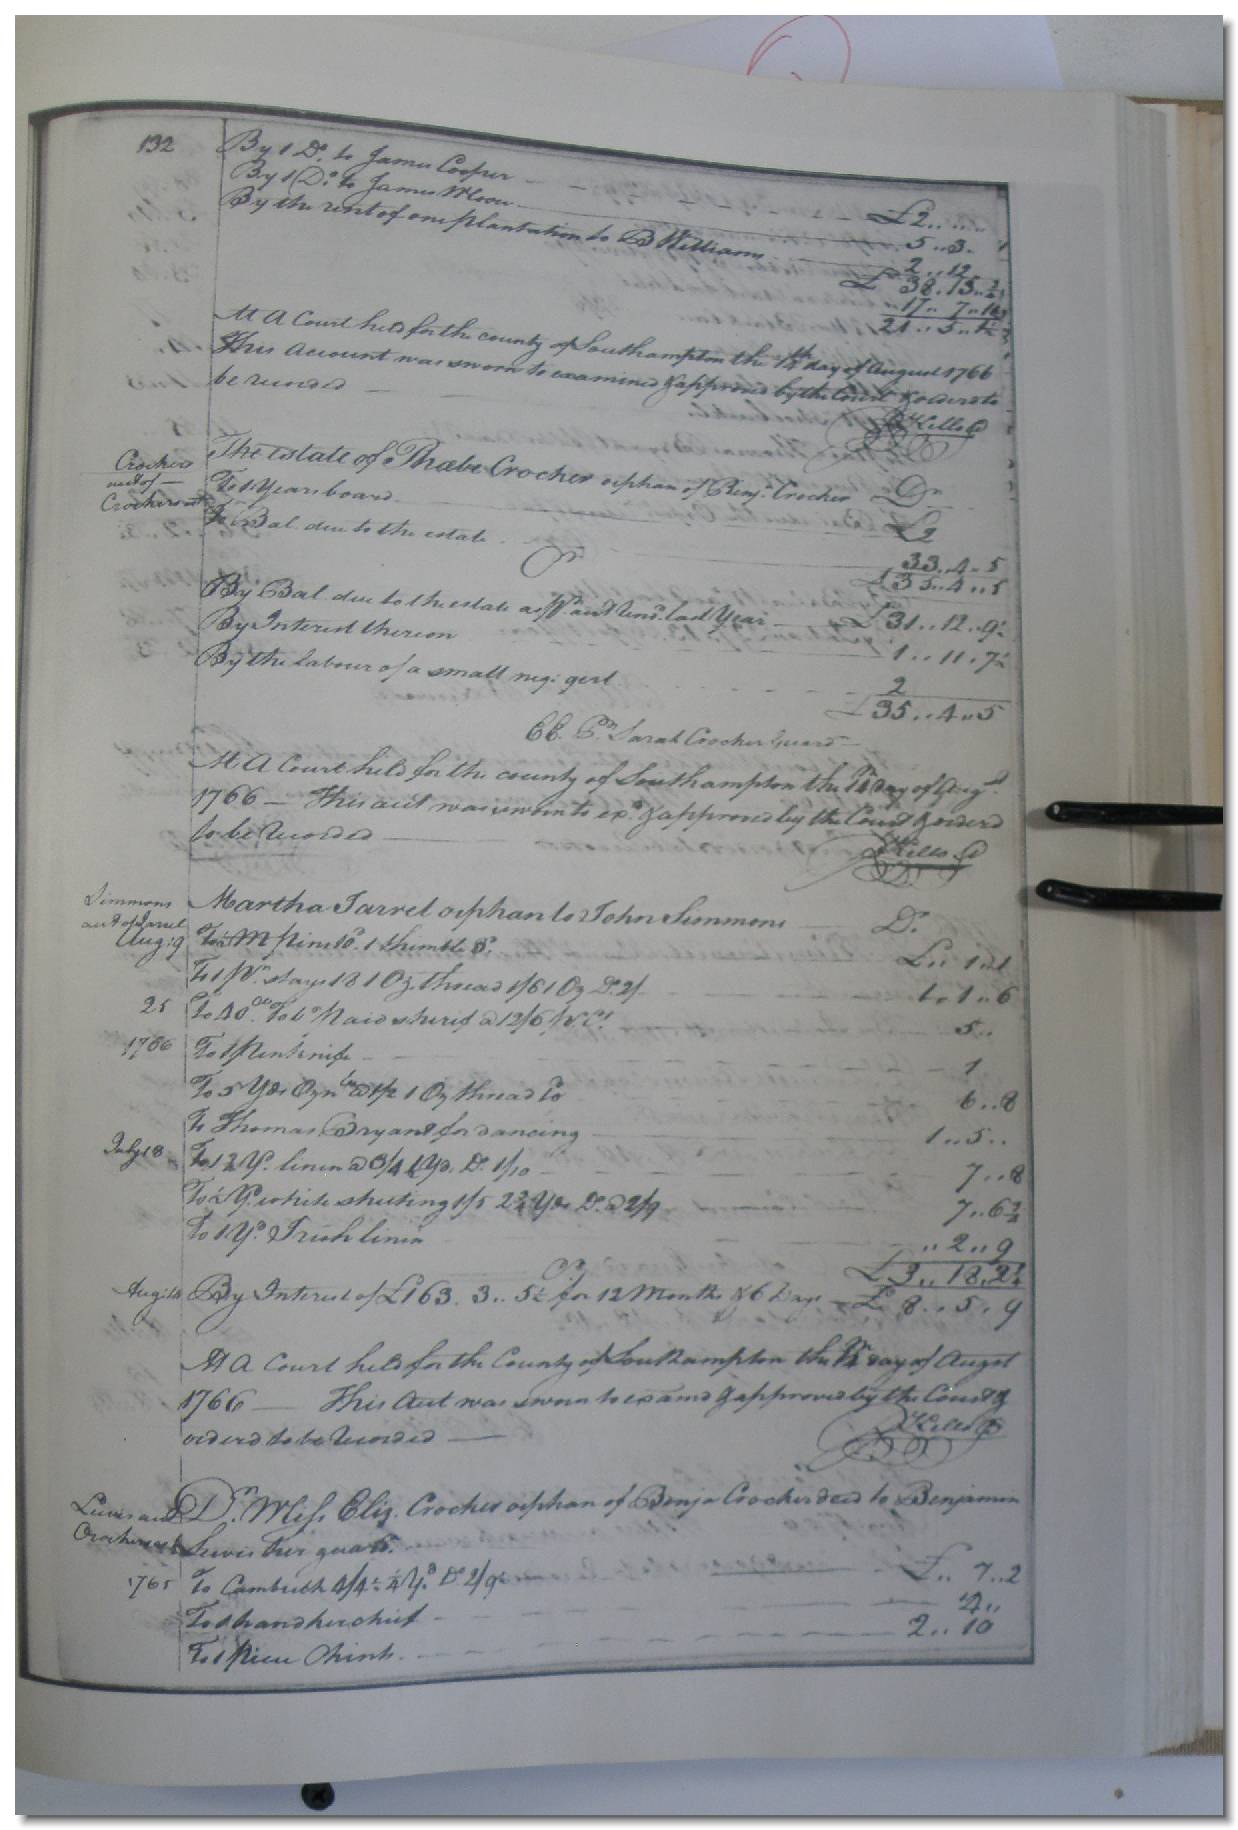 132
By 1 Do. to James Cooper £2
By 1 Do. to James 5..3
By the rent of one plantation to B Williams 2..12
£38..13..
17..7..
21..5..
At A Court held for the county of Southampton the 14th day of August 1766
This account was sworn to examined & approved by the Court & orderd to
be recorded
Kello
Crocher
acct of
Crochers est
The estate of Phœbe Crocher orphan of Benja. Crocher Dr
To 1 Years board £2
To Bal. due to the estate 33..4..5
£35..4..5
Cr
By Bal. due to the estate as pr. acct last Year £31..12..9½
By Interest thereon 1..11..7½
By the labour of a small neg: gerl 2
£35..4..5
Sarah Crocher guard
At A Court held for the county of Southampton the 14 day of Augt
1766 — This acct was sworn to exd. & approved by the Court & orderd
to be recorded
Kello
Simmons
acct of Jarrel
Martha Jarrel orphan to John Simmons Dr.
Aug: 9 To ½ M pins 1 thimble £.. 1..
To 1 pr. stays 18 1 Oz. thread 1/6 1 Oz Do. 2/ 1..1..6
25 To 40 Tobo paid sherif @ 12/6 5..
1766 To 1 Penknife 1
To 5 Yds @ 1/2 1 Oz thread 6..8
To Thomas Bryant for dancing 1..5..
July 18 To 1½ Yd. linen @ 3/4 1 Yd. Do. 1/10 7..8
To ½ Yd. white sheeting 1/5 2¾ Yds Do. @ 2/9 7..6¾
To 1 Yd. Irish linen 2..9
£3..18..2¾
Cr.
Aug: 14 By Interest of £163..3..5½ for 12 Months & 6 Days £8..5..9
At A Court held for the County of Southampton the 14 day of Augst
1766 — This Acct was sworn to examd & approved by the Court &
orderd to be recorded
Kello
Lewis acct
Crochers est
Dr. Miss Eliz. Crocher orphan of Benja Crocher decd to Benjamin
Lewis her guard.
1765 To Cambrick £.. 7..2
To 1 handkerchief 4..
To 1 Piece Chints. 2..10